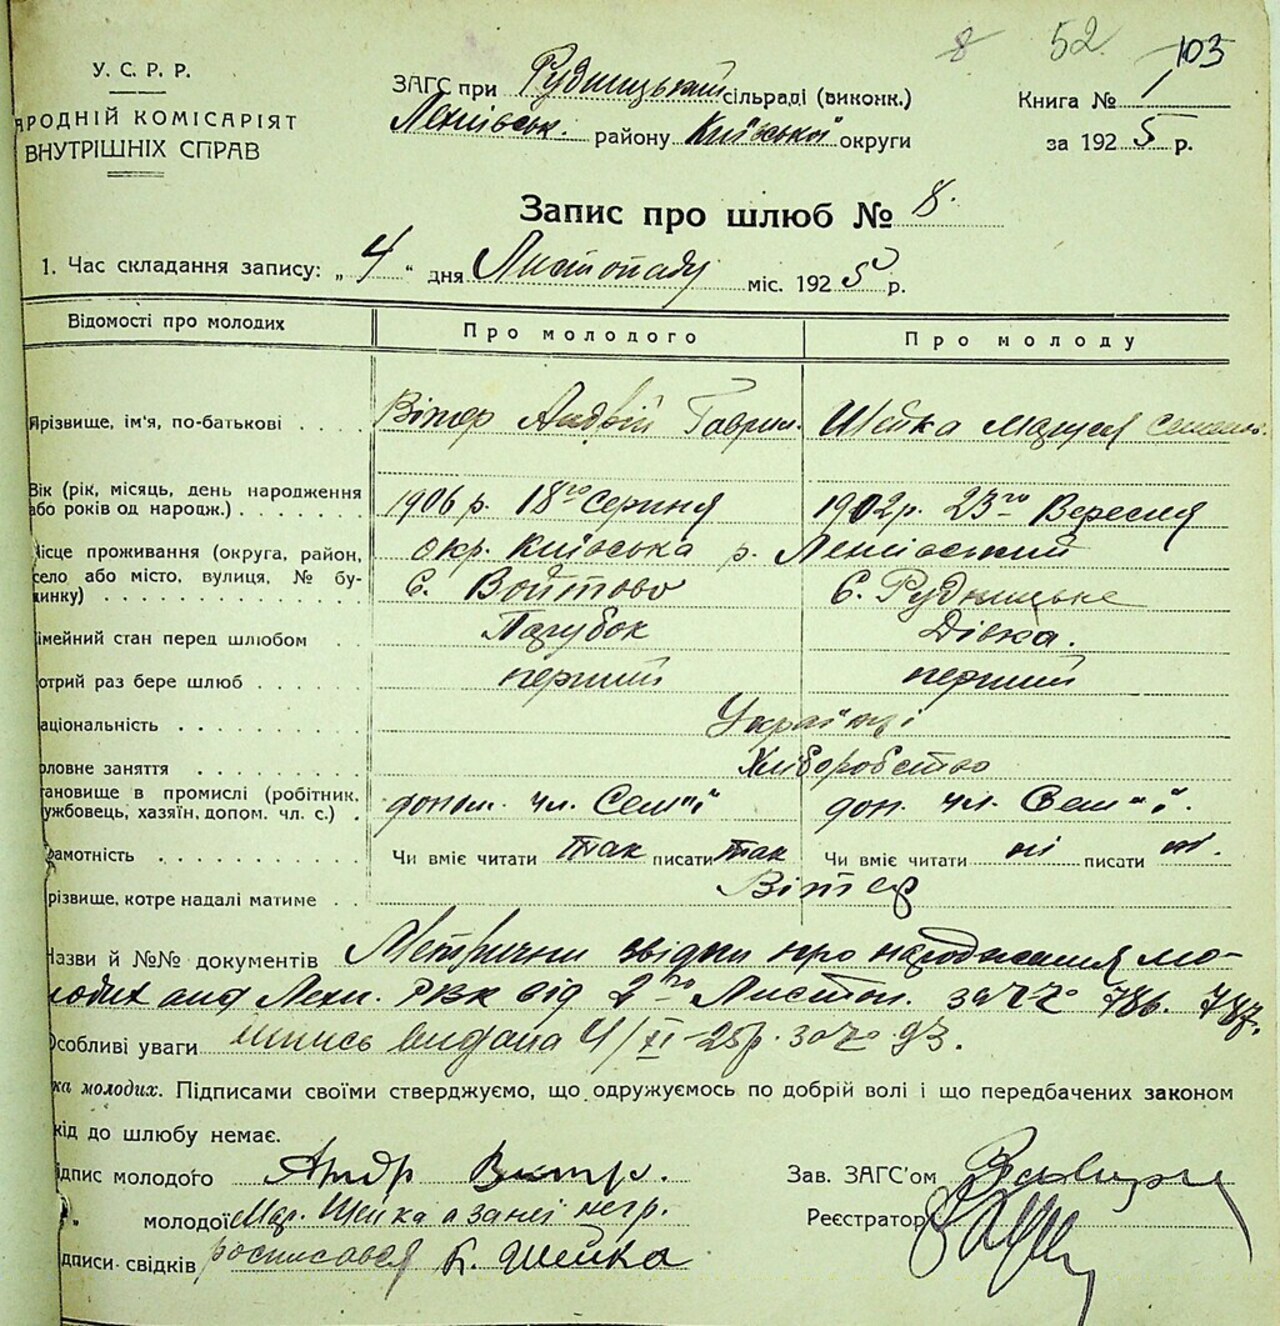 8 52 103
У. С. Р. Р.
АРОДНІЙ КОМІСАРІЯТ
ВНУТРІШНІХ СПРАВ
ЗАГС при Рудницький сільраді (виконк.)
Ленінськ. району Київської округи
Книга № 1
за 1925 р.
Запис про шлюб № 8.
1. Час складання запису: „4“ дня Листопаду міс. 1925 р.
Відомості про молодих Про молодого Про молоду
Прізвище, ім'я, по-батькові Вітер Андрій Гаврил. Шейка Маруся Семен.
Вік (рік, місяць, день народження 1906 р. 18го Серпня 1902 р. 23го Вересня
або років од народж.)
Місце проживання (округа, район, окр. Київська р. Ленінський
село або місто, вулиця, № бу-
динку) С. Войтово С. Рудницьке
імейний стан перед шлюбом Парубок Дівка.
отрий раз бере шлюб перший перший
аціональність Українці
оловне заняття Хліборобство
тановище в промислі (робітник, допом. чл. Сем'ї доп. чл. Сем'ї.
ужбовець, хазяїн, допом. чл. с.)
рамотність Чи вміє читати так писати так Чи вміє читати ні писати ні.
різвище, котре надалі матиме Вітер
Назви й №№ документів Метричні звідки про народження мо-
лодих від Лен. РВК від 2го Листоп. за №№ 786. 787.
Особливі уваги видана 4/XI-25р. за № 93.
ка молодих. Підписами своїми стверджуємо, що одружуємось по добрій волі і що передбачених законом
кід до шлюбу немає.
ідпис молодого Андр Витр.
„ молодої Мар. Шейка а за неї негр.
дписи свідків росписався К. Шейка
Зав. ЗАГС'ом
Реєстратор